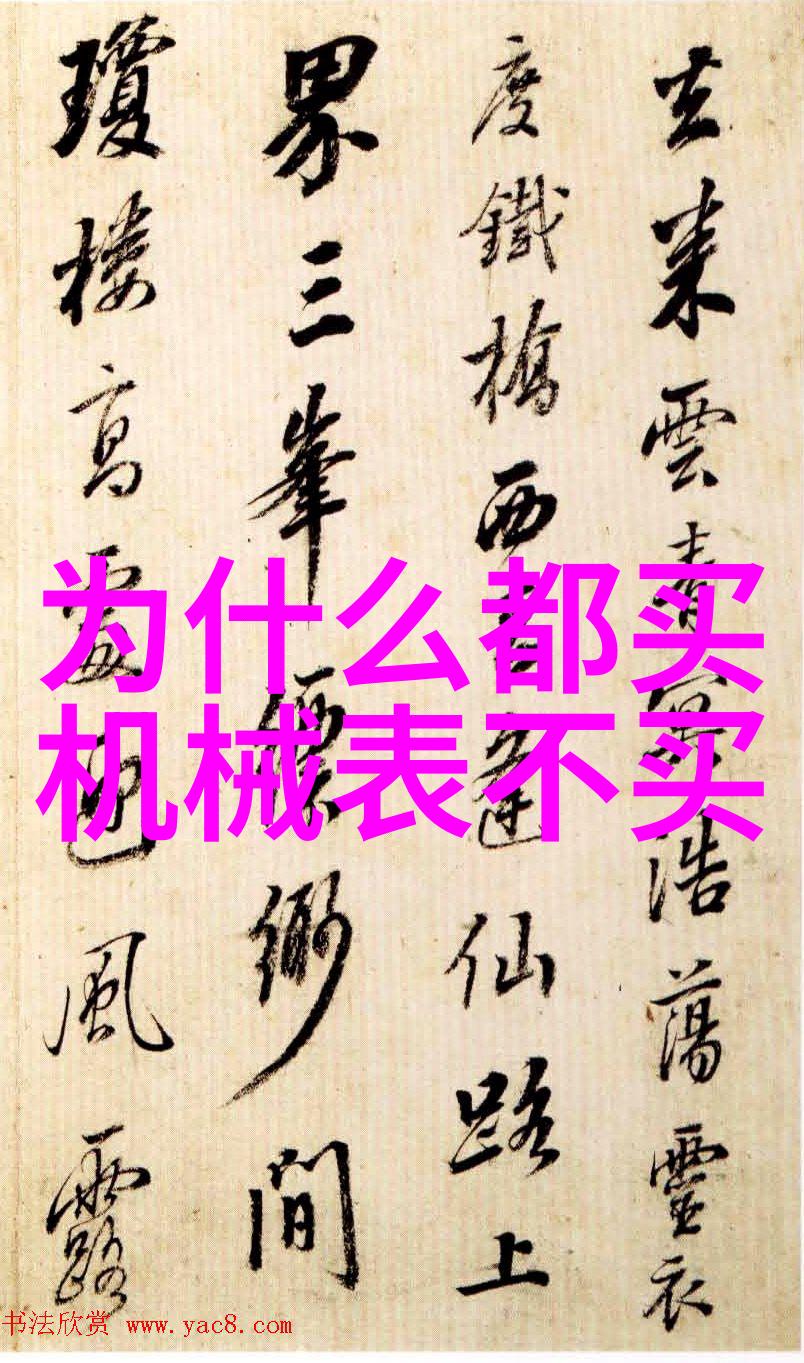 去來雲青冥浩蕩靈衣
度鐵橋西逢仙路上
界三峯縹緲間
瓊樓高處風露
为什么都买
机械表不买
书法欣赏 www.yac8.com